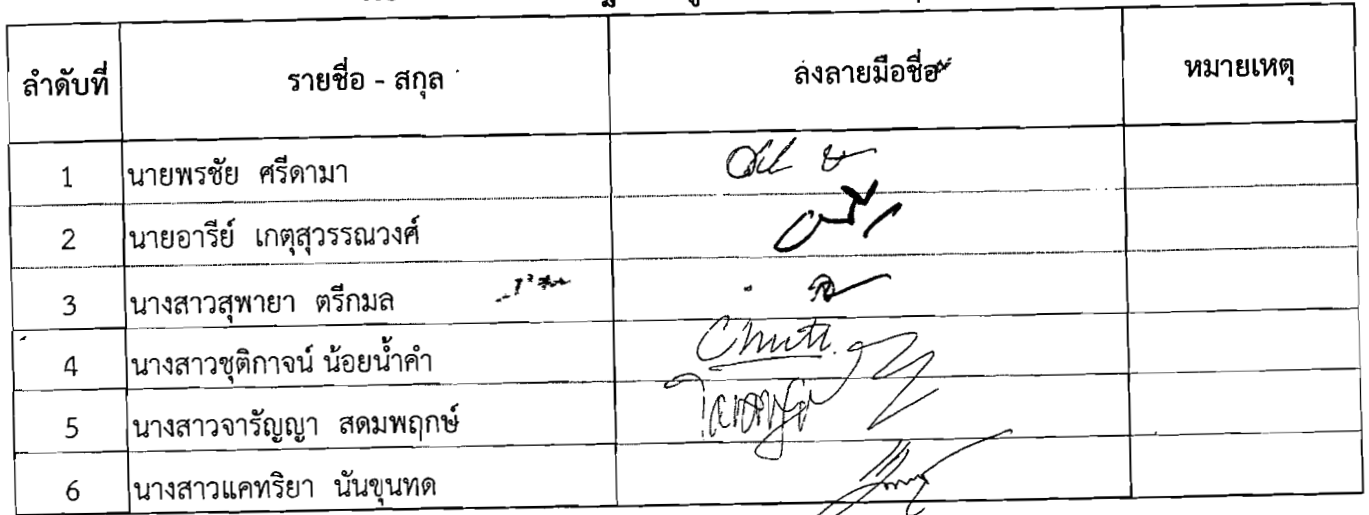 ลำดับที่ รายชื่อ - สกุล ลงลายมือชื่อ หมายเหตุ
1 นายพรชัย ศรีดามา
2 นายอารีย์ เกตุสุวรรณวงศ์
3 นางสาวสุพายา ตรีกมล
4 นางสาวชุติกาจน์ น้อยน้ำคำ Chuti.
5 นางสาวจารัญญา สดมพฤกษ์
6 นางสาวแคทริยา นันขุนทด